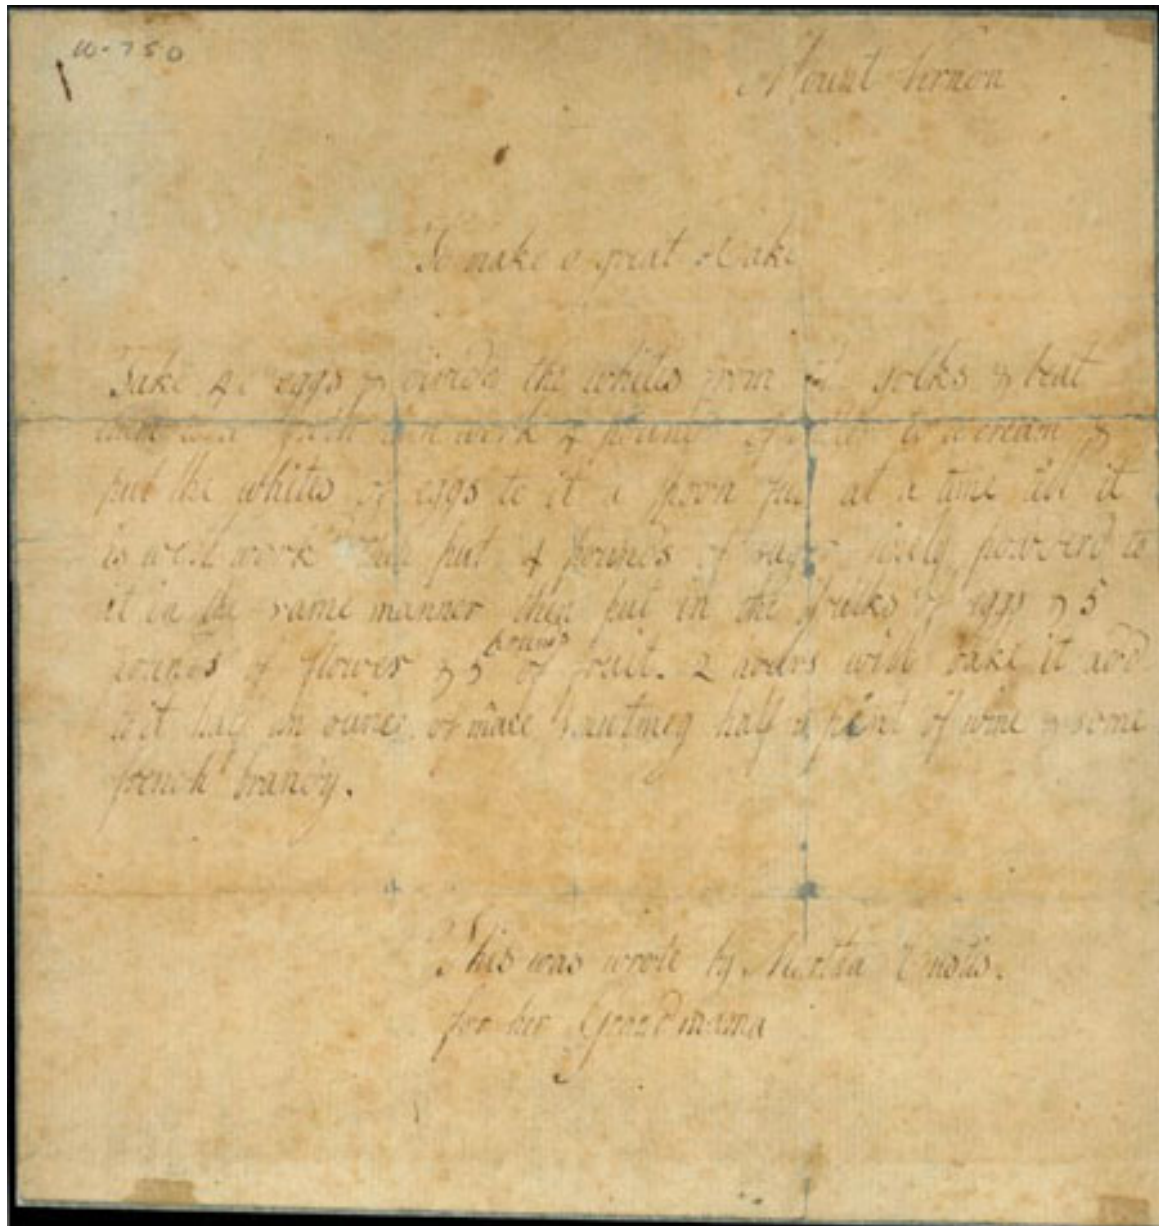 W-750
Mount Vernon
To make a great Cake
Take 40 eggs & divide the whites from the yolks & beat
them to a froth then work 4 pounds of butter to a cream &
put the whites of eggs to it a spoon full at a time till it
is well work'd then put 4 pounds of sugar finely powderd to
it in the same manner then put in the youlks of eggs & 5
pounds of flower & 5 pounds of fruit. 2 hours will bake it add
to it half an ounce of mace 1 nutmeg half a pint of wine & some
french brandy.
This was wrote by Martha Custis.
for her Grandmama